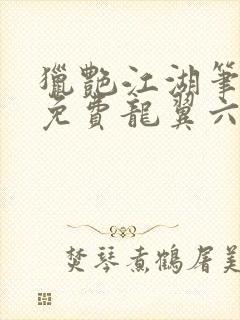 獵艷江湖筆
免費龍翼六
焚琴煮鶴屠美